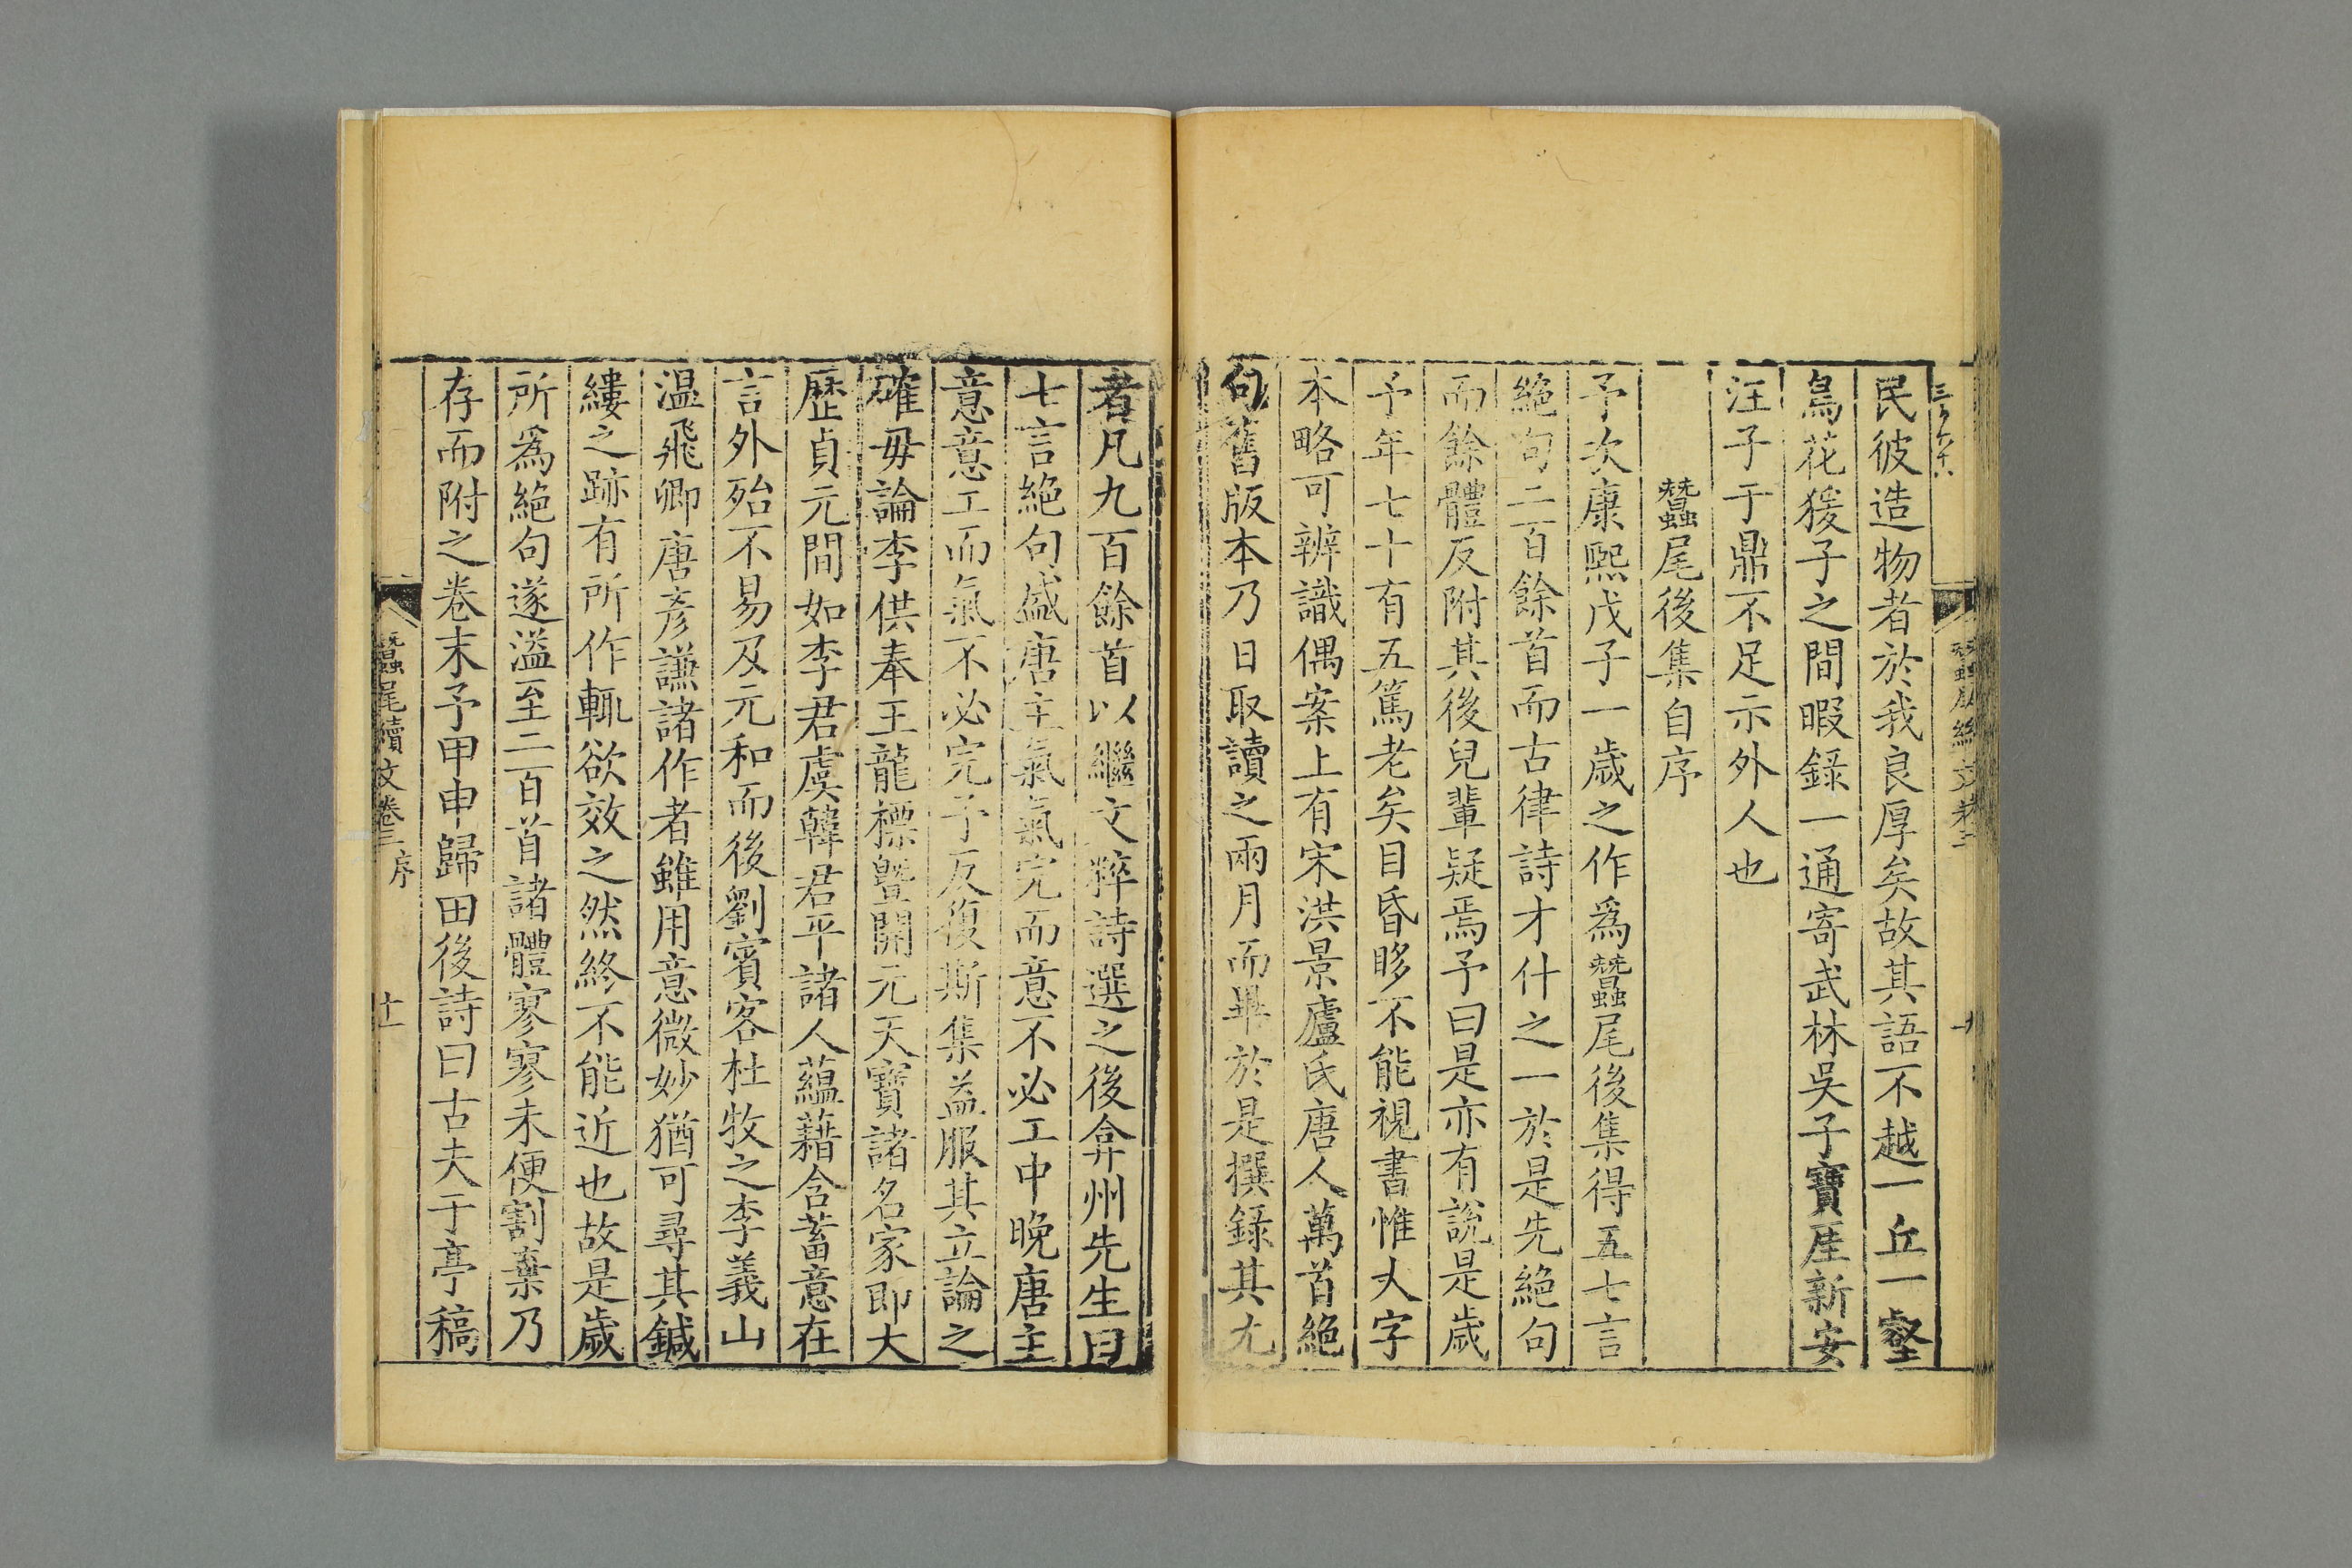 民彼造物者於我良厚矣故其語不越一丘一壑
鳥花猨子之間暇錄一通寄武林吳子寶厓新安
汪子于鼎不足示外人也
蠶尾後集自序
予次康熙戊子一歲之作爲蠶尾後集得五七言
絶句二百餘首而古律詩才什之一於是先絶句
而餘體反附其後兒輩疑焉予曰是亦有說是歲
予年七十有五篤老矣目昏眵不能視書惟大字
本略可辨識偶案上有宋洪景廬氏唐人萬首絶
句舊版本乃日取讀之兩月而畢於是撰録其尤
者凡九百餘首以繼文粹詩選之後弇州先生曰
七言絶句盛唐主氣氣完而意不必工中晚唐主
意意工而氣不必完予反復斯集益服其立論之
確毋論李供奉王龍標曁開元天寶諸名家即大
歷貞元間如李君虞韓君平諸人蘊藉含蓄意在
言外殆不易及元和而後劉賓客杜牧之李義山
温飛卿唐彥謙諸作者雖用意微妙猶可尋其鍼
縷之跡有所作輒欲效之然終不能近也故是歲
所爲絶句遂溢至二百首諸體寥寥未便割棄乃
存而附之卷末予甲申歸田後詩曰古夫于亭稿
蠶尾續文卷三 序 十一